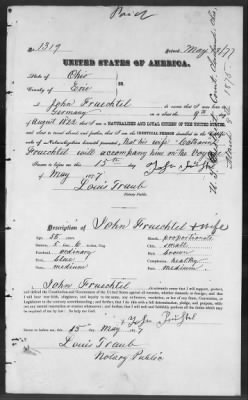 Paid
No. 1319
Issued, May 23/77
UNITED STATES OF AMERICA.
State of Ohio
County of Erie
SS.
I, John Fruechtel do swear that I was born in
Germany on the 9th
of August 1822 that I am a NATURALIZED AND LOYAL CITIZEN OF THE UNITED STATES,
and about to travel abroad; and further, that I am the IDENTICAL PERSON described in the
of Naturalization herewith presented, that his wife Catharine
Fruechtel will accompany him on the voyage
Sworn to before me, this 15th day
of May 1877
Louis Traub
Notary Public.
Description of John Fruechtel & wife
Age: 55 years
Mouth: proportionate
Stature: 5 feet 6 inches, Eng.
Chin: small
Forehead: ordinary
Hair: brown
Eyes: blue
Complexion: healthy
Nose: medium
Face: medium
I, John Fruechtel do solemnly swear that I will support, protect,
and defend the Constitution and Government of the United States against all enemies, whether domestic or foreign; and that
I will bear true faith, allegiance, and loyalty to the same, any ordinance, resolution, or law of any State, Convention, or
Legislature to the contrary notwithstanding; and further, that I do this with a full determination, pledge, and purpose, without
any mental reservation or evasion whatsoever; and further, that I will well and faithfully perform all the duties which may
be required of me by law: So help me God.
Sworn to before me, this 15th May 1877
Louis Traub
Notary Public